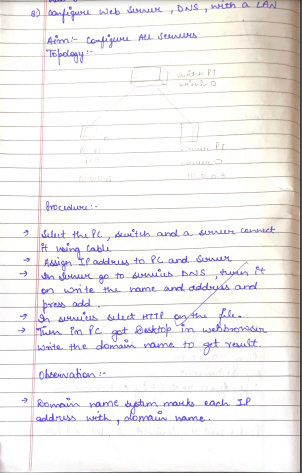 8) Configure Web Server, DNS, with a LAN
Aim:- Configure All Servers
Topology:-
Procedure:-
→ Select the PC, switch and a server connect
it using cable
→ Assign IP address to PC and Server
→ In Server go to services DNS, turn it
on write the name and address and
press add.
→ In services select HTTP on the file.
→ Turn in PC got Desktop in webbrowser
write the domain name to get result.
Observation:-
→ Domain name system marks each I.P
address with, domain name.